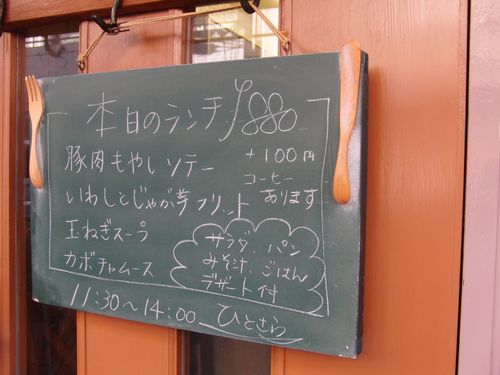 本日のランチ ¥880
豚肉もやしソテー
+100円
コーヒー
あります
いわしとじゃが芋フリット
玉ねぎスープ
カボチャムース
サラダ、パン
みそ汁、ごはん
デザート付
11:30~14:00
ひとさら